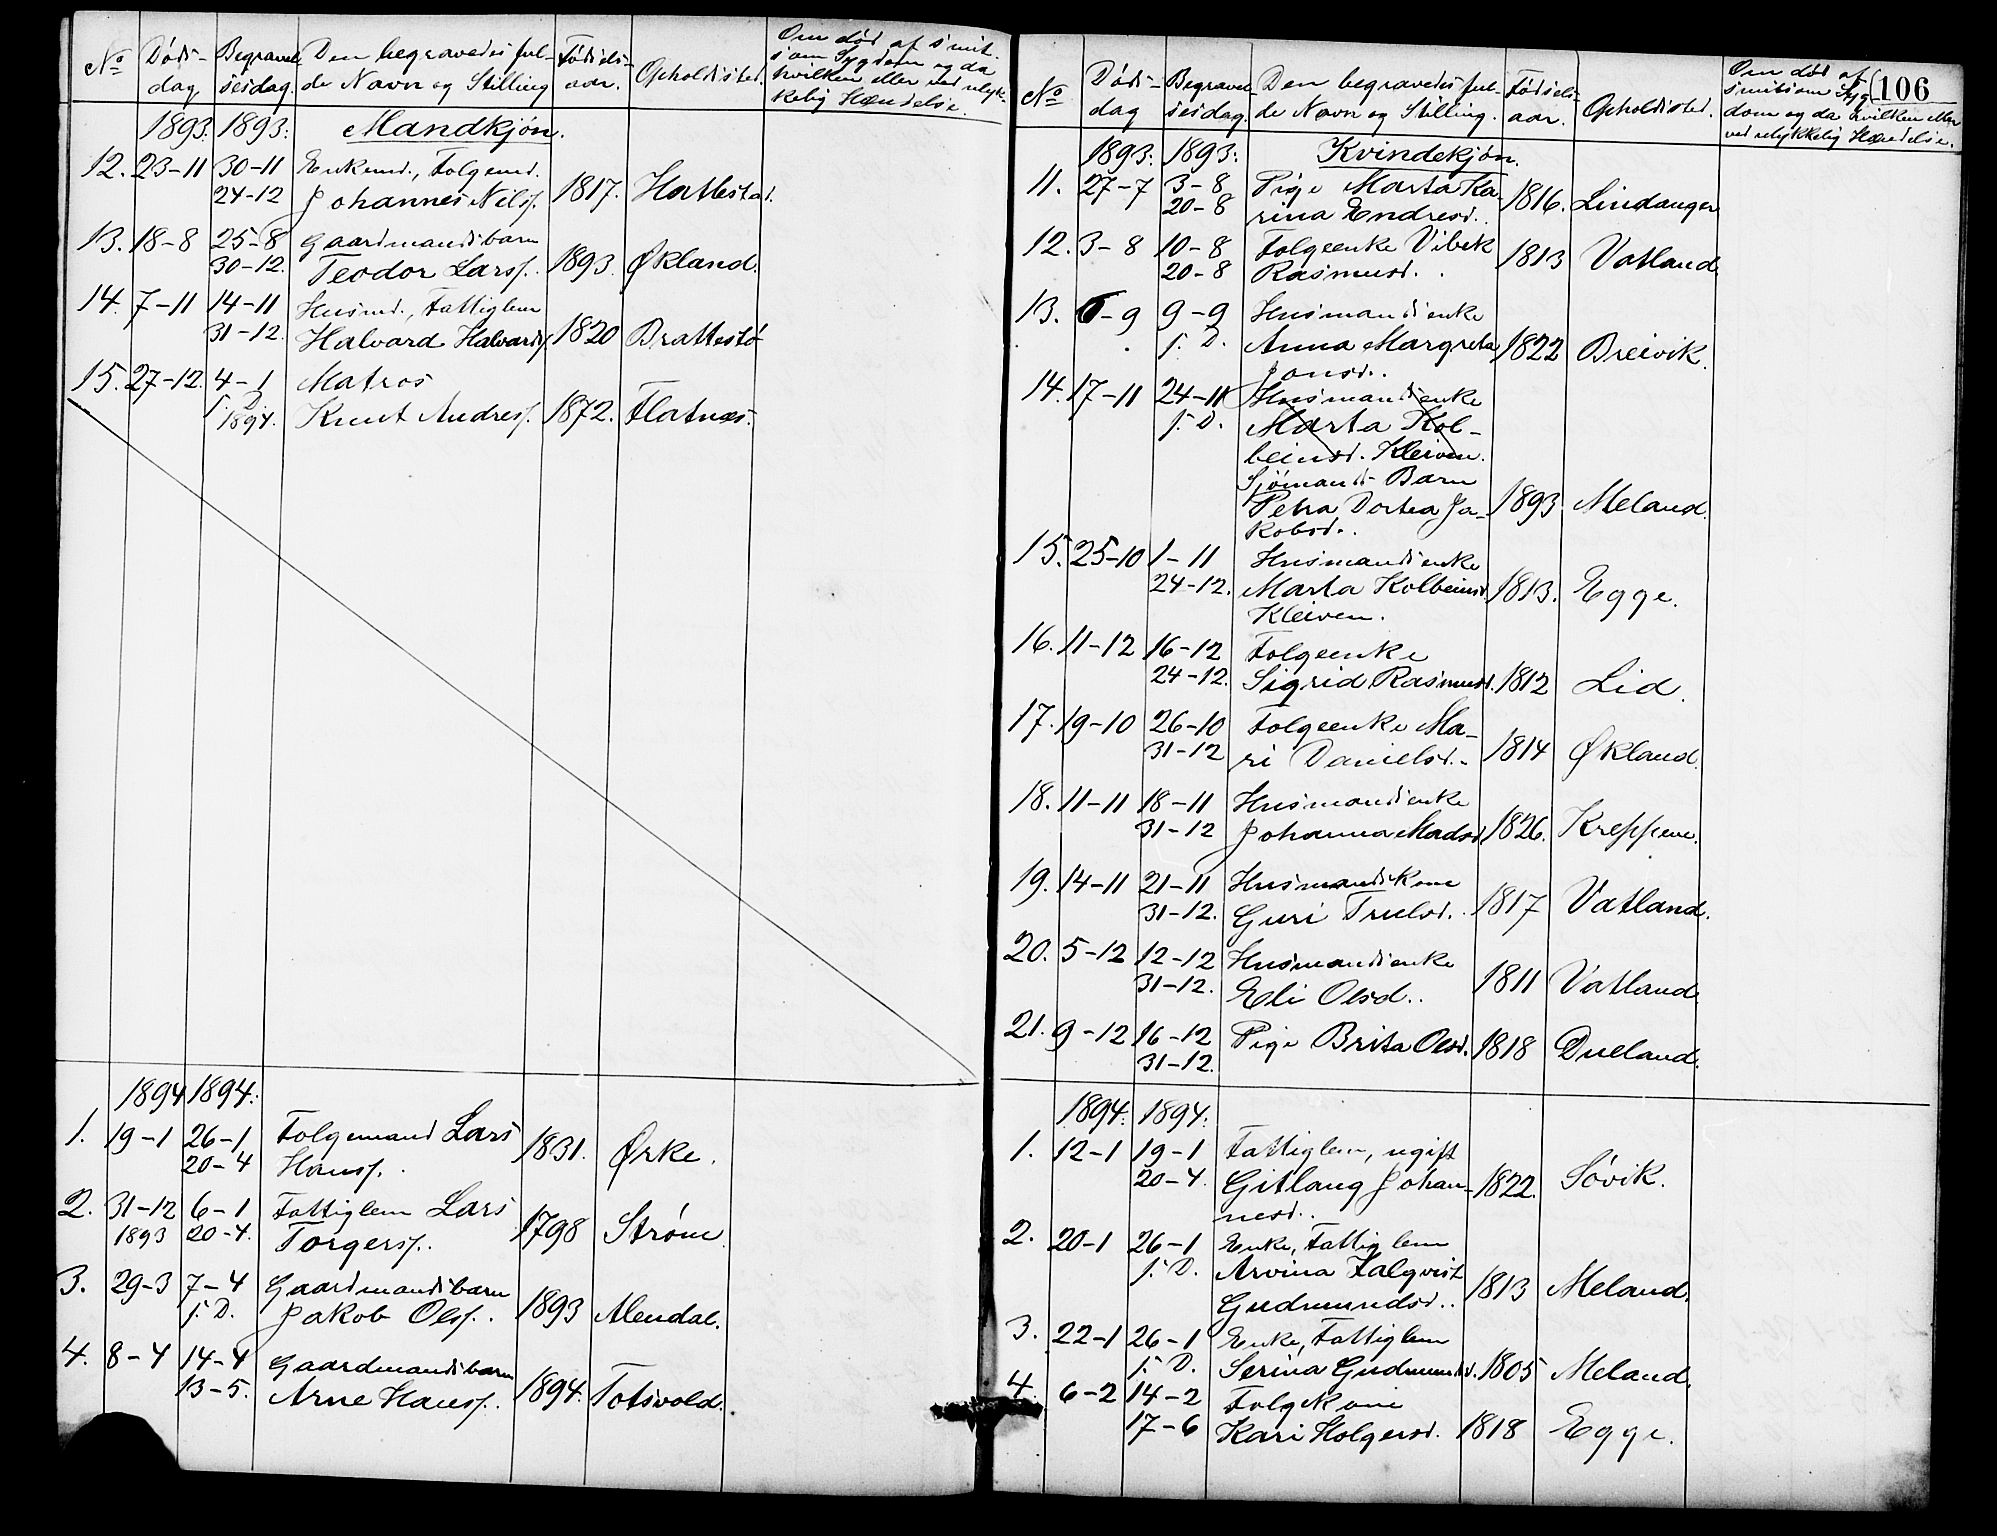 No Døds- Begravel- Den begravedes ful- Fødsels- Opholdssted. Om død af smit-
dag sesdag. de Navn og Stilling aar. som Sygdom og da
hvilken eller ved ulyk-
kelig Hændelse.
1893. 1893: Mandkjøn.
12. 23-11 30-11 Enkemd., Folgemd.
24-12 Johannes Nilss. 1817. Hattestad.
13. 18-8 25-8 Gaardmandsbarn
30-12. Teodor Larss. 1893. Økland.
14. 7-11 14-11 Husmd., Fattiglem
31-12. Halvard Halvards. 1820 Brattestø
15. 27-12. 4-1 Matros
s. D. 1894. Knut Andress. 1872. Flatnæs.
1894 1894.:
1. 19-1 26-1 Folgemand Lars
20-4 Hanss. 1831. Ørke.
2. 31-12 6-1 Fattiglem Lars
1893 20-4. Torgerss. 1798 Strøm.
3. 29-3 7-4 Gaardmandsbarn
s. D. Jakob Olss. 1893 Alendal.
4. 8-4 14-4 Gaardmandsbarn
13-5. Arne Hanss. 1894. Totsvold.
106
No Døds- Begravel- Den begravedes ful- Fødsels- Opholdssted. Om død af
dag sesdag. de Navn og Stilling. aar. smitsom Syg-
dom og da hvilken eller
ved ulykkelig Hændelse.
1893. 1893: Kvindekjøn.
11. 27-7 3-8 Pige Marta Ka-
20-8 rina Endresd. 1816. Lindanger
12. 3-8 10-8 Folgeenke Vibek
20-8 Rasmusd. 1813 Vatland
13. 6-9 9-9 Husmandsenke
s. D. Anna Margreta 1822 Breivik.
Jonsd..
14. 17-11 24-11 Husmandsenke
s. D. Marta Kol-
beinsd. Kleiven.
Sjømands Barn
Petra Dortea Ja- 1893. Meland.
kobsd..
15. 25-10 1-11 Husmandsenke
24-12. Marta Kolbeinsd. 1813. Egge.
Kleiven.
16. 11-12 16-12 Folgeenke
24-12. Sigrid Rasmusd. 1812 Lid.
17. 19-10 26-10 Folgeenke Ma-
31-12 ri Danielsd.. 1814 Økland.
18. 11-11 18-11 Husmandsenke
31-12 Johanna Madsd. 1826. Kreppene.
19. 14-11 21-11 Husmandskone
31-12. Guri Trulsd. 1817 Vatland.
20. 5-12 12-12 Husmandsenke
31-12. Eli Olsd.. 1811 Vatland
21. 9-12 16-12 Pige Brita Olsd. 1818 Dueland.
31-12.
1894: 1894:
1. 12-1 19-1 Fattiglem, ugift
20-4. Gitlaug Johan- 1822. Søvik.
nesd..
2. 20-1 26-1 Enke, Fattiglem
s. D. Arvina Falqvist
Gudmundsd.. 1813 Meland.
3. 22-1 26-1 Enke, Fattiglem
s. D. Serina Gudmundsd. 1805 Meland.
4. 6-2 14-2 Folgekone
17-6 Kari Holgersd. 1818 Egge.